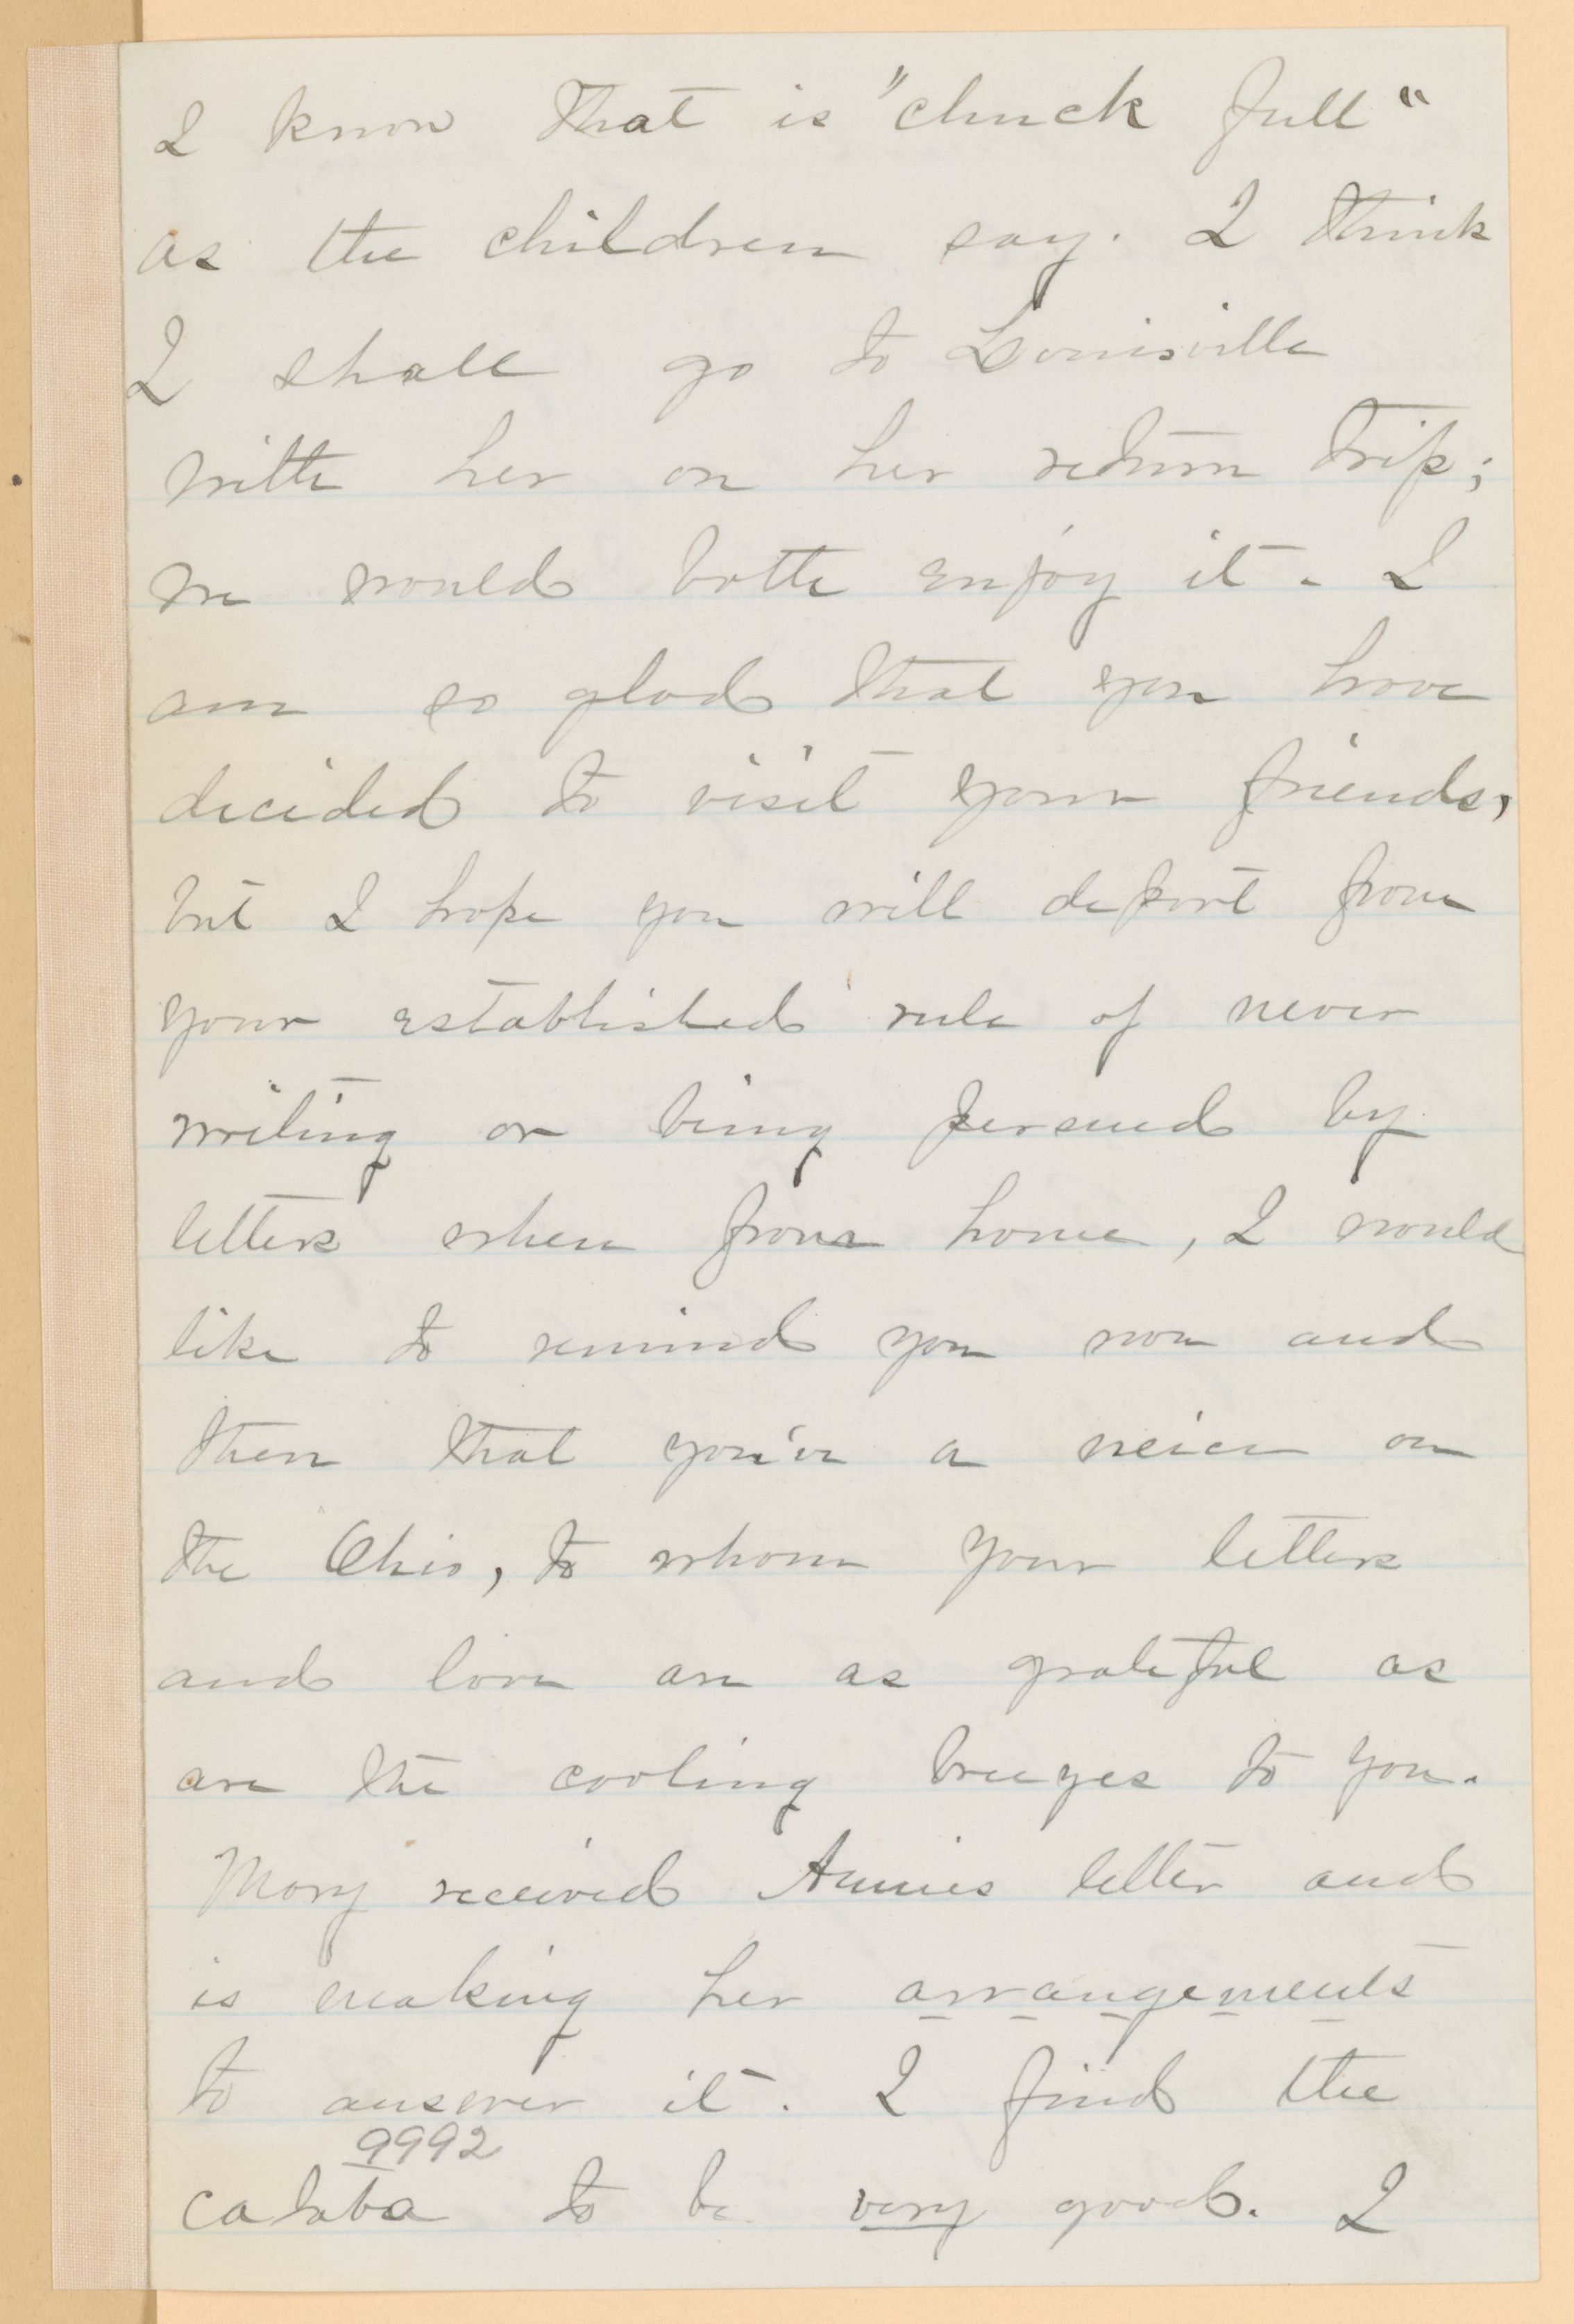 I know that is "chuck full"
as the children say. I think
I shall go to Louisville
with her on her return trip;
we would both enjoy it. I
am so glad that you have
decided to visit your friends,
but I hope you will depart from
your established rule of never
writing or being persued by
letters when from home, I would
like to remind you now and
then that you've a neice on
the Ohio, to whom your letters
and love are as grateful as
are the cooling breezes to you.
Mary received Annies letter and
is making her arrangements
to answer it. I find the
9992
to be very good. I